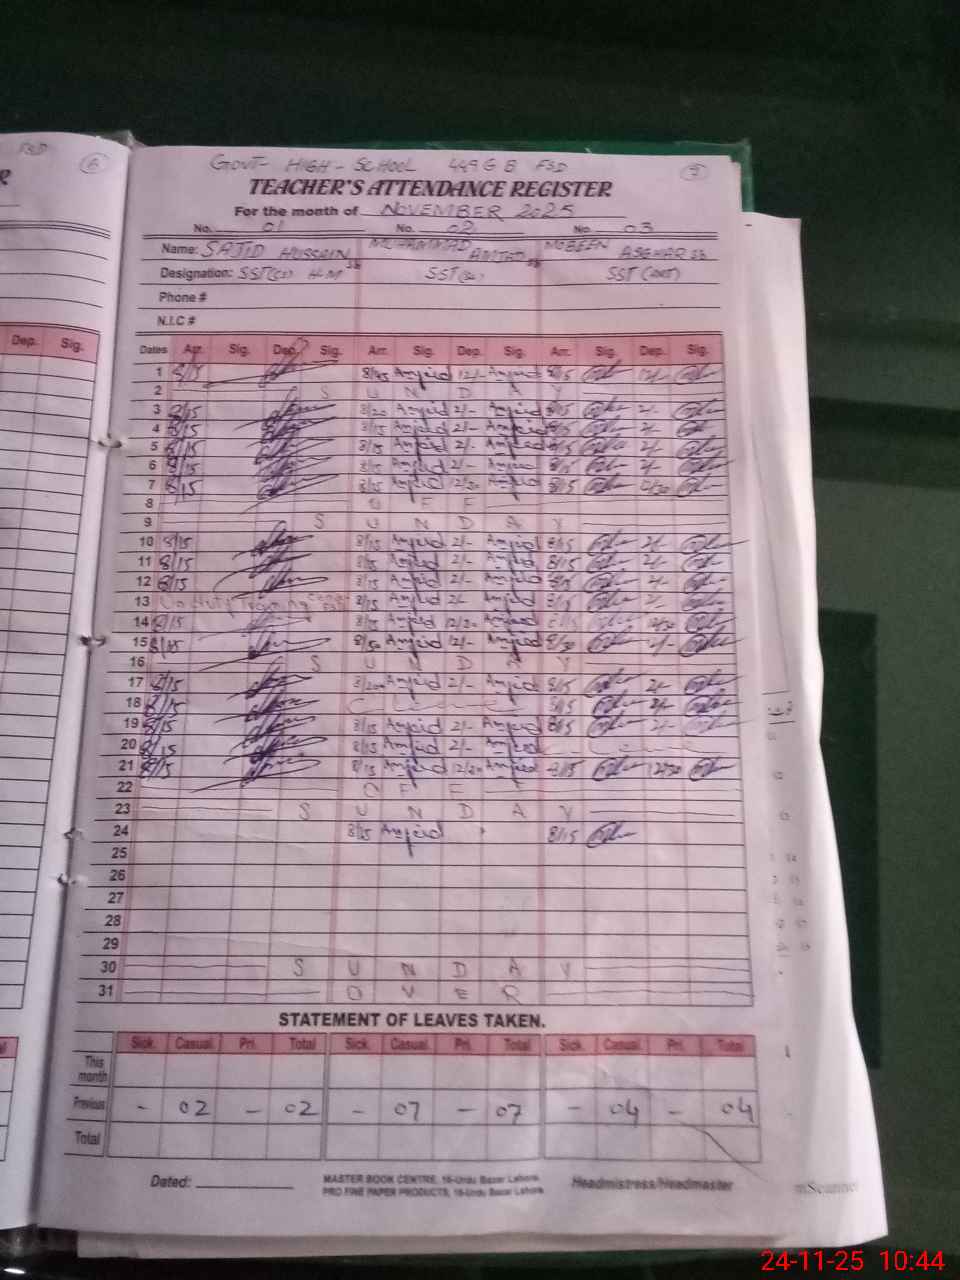 FSD 6
GOVT- HIGH-SCHOOL 449 G B FSD 7
TEACHER'S ATTENDANCE REGISTER
For the month of NOVEMBER 2025
No. 01 No. 02 No. 03
Name: SAJID HUSSAIN Sb MUHAMMAD AMJAD Sb MOBEEN ASGHAR Sb
Designation: SST(CS) H-M SST(Sc) SST
Phone #
N.I.C #
Dep. Sig. Dates Arr. Sig. Dep. Sig. Arr. Sig. Dep. Sig. Arr. Sig. Dep. Sig.
1 8/15 8/45 Amjad 12/- Amjad 8/15 12/-
2 S U N D A Y
3 8/15 8/20 Amjad 2/- Amjad 8/15 2/-
4 8/15 8/15 Amjad 2/- Amjad 8/15 2/-
5 8/15 8/15 Amjad 2/- Amjad 8/15 2/-
6 8/15 8/15 Amjad 2/- Amjad 8/15 2/-
7 8/15 8/15 Amjad 12/30 Amjad 8/15 12/30
8 O F F
9 S U N D A Y
10 8/15 8/15 Amjad 2/- Amjad 8/15 2/-
11 8/15 8/15 Amjad 2/- Amjad 8/15 2/-
12 8/15 8/15 Amjad 2/- Amjad 8/15 2/-
13 On duty Training 8/15 Amjad 2/- Amjad 8/15 2/-
14 8/15 8/15 Amjad 12/30 Amjad 8/15 12/30
15 8/15 8/50 Amjad 12/- Amjad 8/30
16 S U N D A Y
17 8/15 Amjad 2/- Amjad 8/15 2/-
18 8/15 C Leave 8/15 2/-
19 8/15 8/15 Amjad 2/- Amjad 8/15 2/-
20 8/15 8/15 Amjad 2/- Amjad C Leave
21 8/15 8/15 Amjad 12/30 Amjad 8/15 12/30
22 O F F
23 S U N D A Y
24 8/15 Amjad 8/15
25
26
27
28
29
30 S U N D A Y
31 O V E R
STATEMENT OF LEAVES TAKEN.
Sick. Casual. Pri. Total Sick. Casual. Pri. Total Sick. Casual. Pri. Total
This month
Previous - 02 - 02 - 07 - 07 - 04 - 04
Total
Dated:
MASTER BOOK CENTRE, 16-Urdu Bazar Lahore.
PRO FINE PAPER PRODUCTS, 16-Urdu Bazar Lahore
Headmistress/Headmaster
24-11-25 10:44